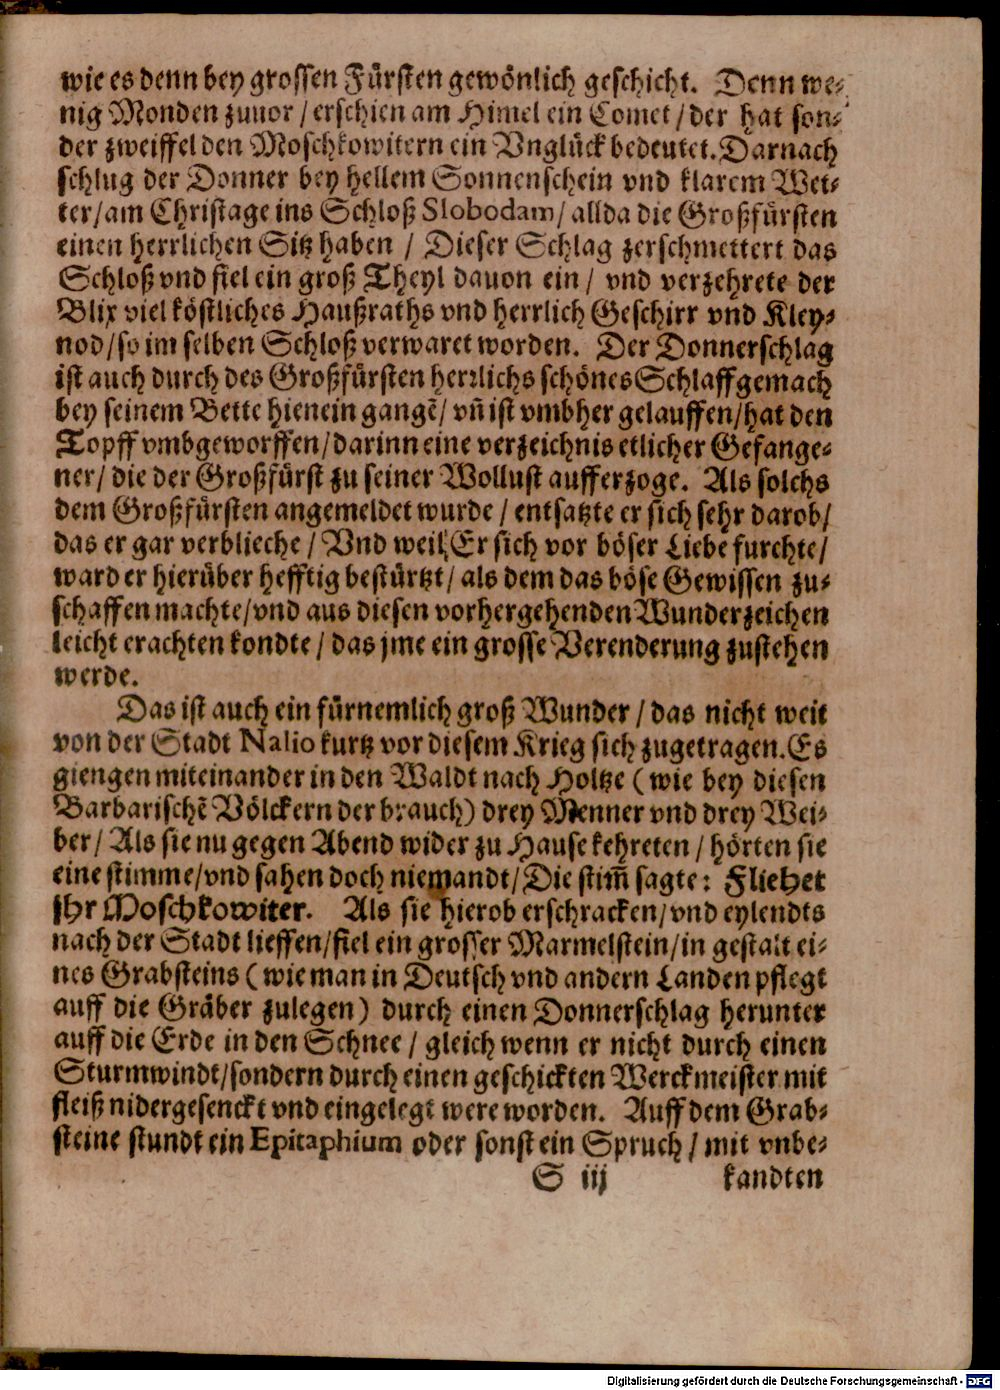 wie es denn bey grossen Fürsten gewönlich geschicht. Denn we-
nig Monden zuuor / erschien am Himel ein Comet / der hat son-
der zweiffel den Moschkowitern ein Vnglück bedeutet. Darnach
schlug der Donner bey hellem Sonnenschein vnd klarem Wet-
ter / am Christage ins Schloß Slobodam / allda die Großfürsten
einen herrlichen Sitz haben / Dieser Schlag zerschmettert das
Schloß vnd fiel ein groß Theyl dauon ein / vnd verzehrete der
Blix viel köstliches Haußraths vnd herrlich Geschirr vnd Kley-
nod / so im selben Schloß verwaret worden. Der Donnerschlag
ist auch durch des Großfürsten herrlichs schönes Schlaffgemach
bey seinem Bette hienein gangẽ / vñ ist vmbher gelauffen / hat den
Topff vmbgeworffen / darinn eine verzeichnis etlicher Gefange-
ner / die der Großfürst zu seiner Wollust aufferzoge. Als solchs
dem Großfürsten angemeldet wurde / entsatzte er sich sehr darob /
das er gar verblieche / Vnd weil Er sich vor böser Liebe furchte /
ward er hierüber hefftig bestürtzt / als dem das böse Gewissen zu-
schaffen machte / vnd aus diesen vorhergehenden Wunderzeichen
leicht erachten kondte / das jme ein grosse Verenderung zustehen
werde.
Das ist auch ein fürnemlich groß Wunder / das nicht weit
von der Stadt Nalio kurtz vor diesem Krieg sich zugetragen. Es
giengen miteinander in den Waldt nach Holtze ( wie bey diesen
Barbarischẽ Völckern der brauch) drey Menner vnd drey Wei-
ber / Als sie nu gegen Abend wider zu Hause kehreten / hörten sie
eine stimme / vnd sahen doch niemandt / Die stim̃ sagte : Fliehet
jhr Moschkowiter. Als sie hierob erschracken / vnd eylendts
nach der Stadt lieffen / fiel ein grosser Marmelstein / in gestalt ei-
nes Grabsteins ( wie man in Deutsch vnd andern Landen pflegt
auff die Gräber zulegen ) durch einen Donnerschlag herunter
auff die Erde in den Schnee / gleich wenn er nicht durch einen
Sturmwindt / sondern durch einen geschickten Werckmeister mit
fleiß nidergesenckt vnd eingelegt were worden. Auff dem Grab-
steine stundt ein Epitaphium oder sonst ein Spruch / mit vnbe-
S iij kandten
Digitalisierung gefördert durch die Deutsche Forschungsgemeinschaft - DFG